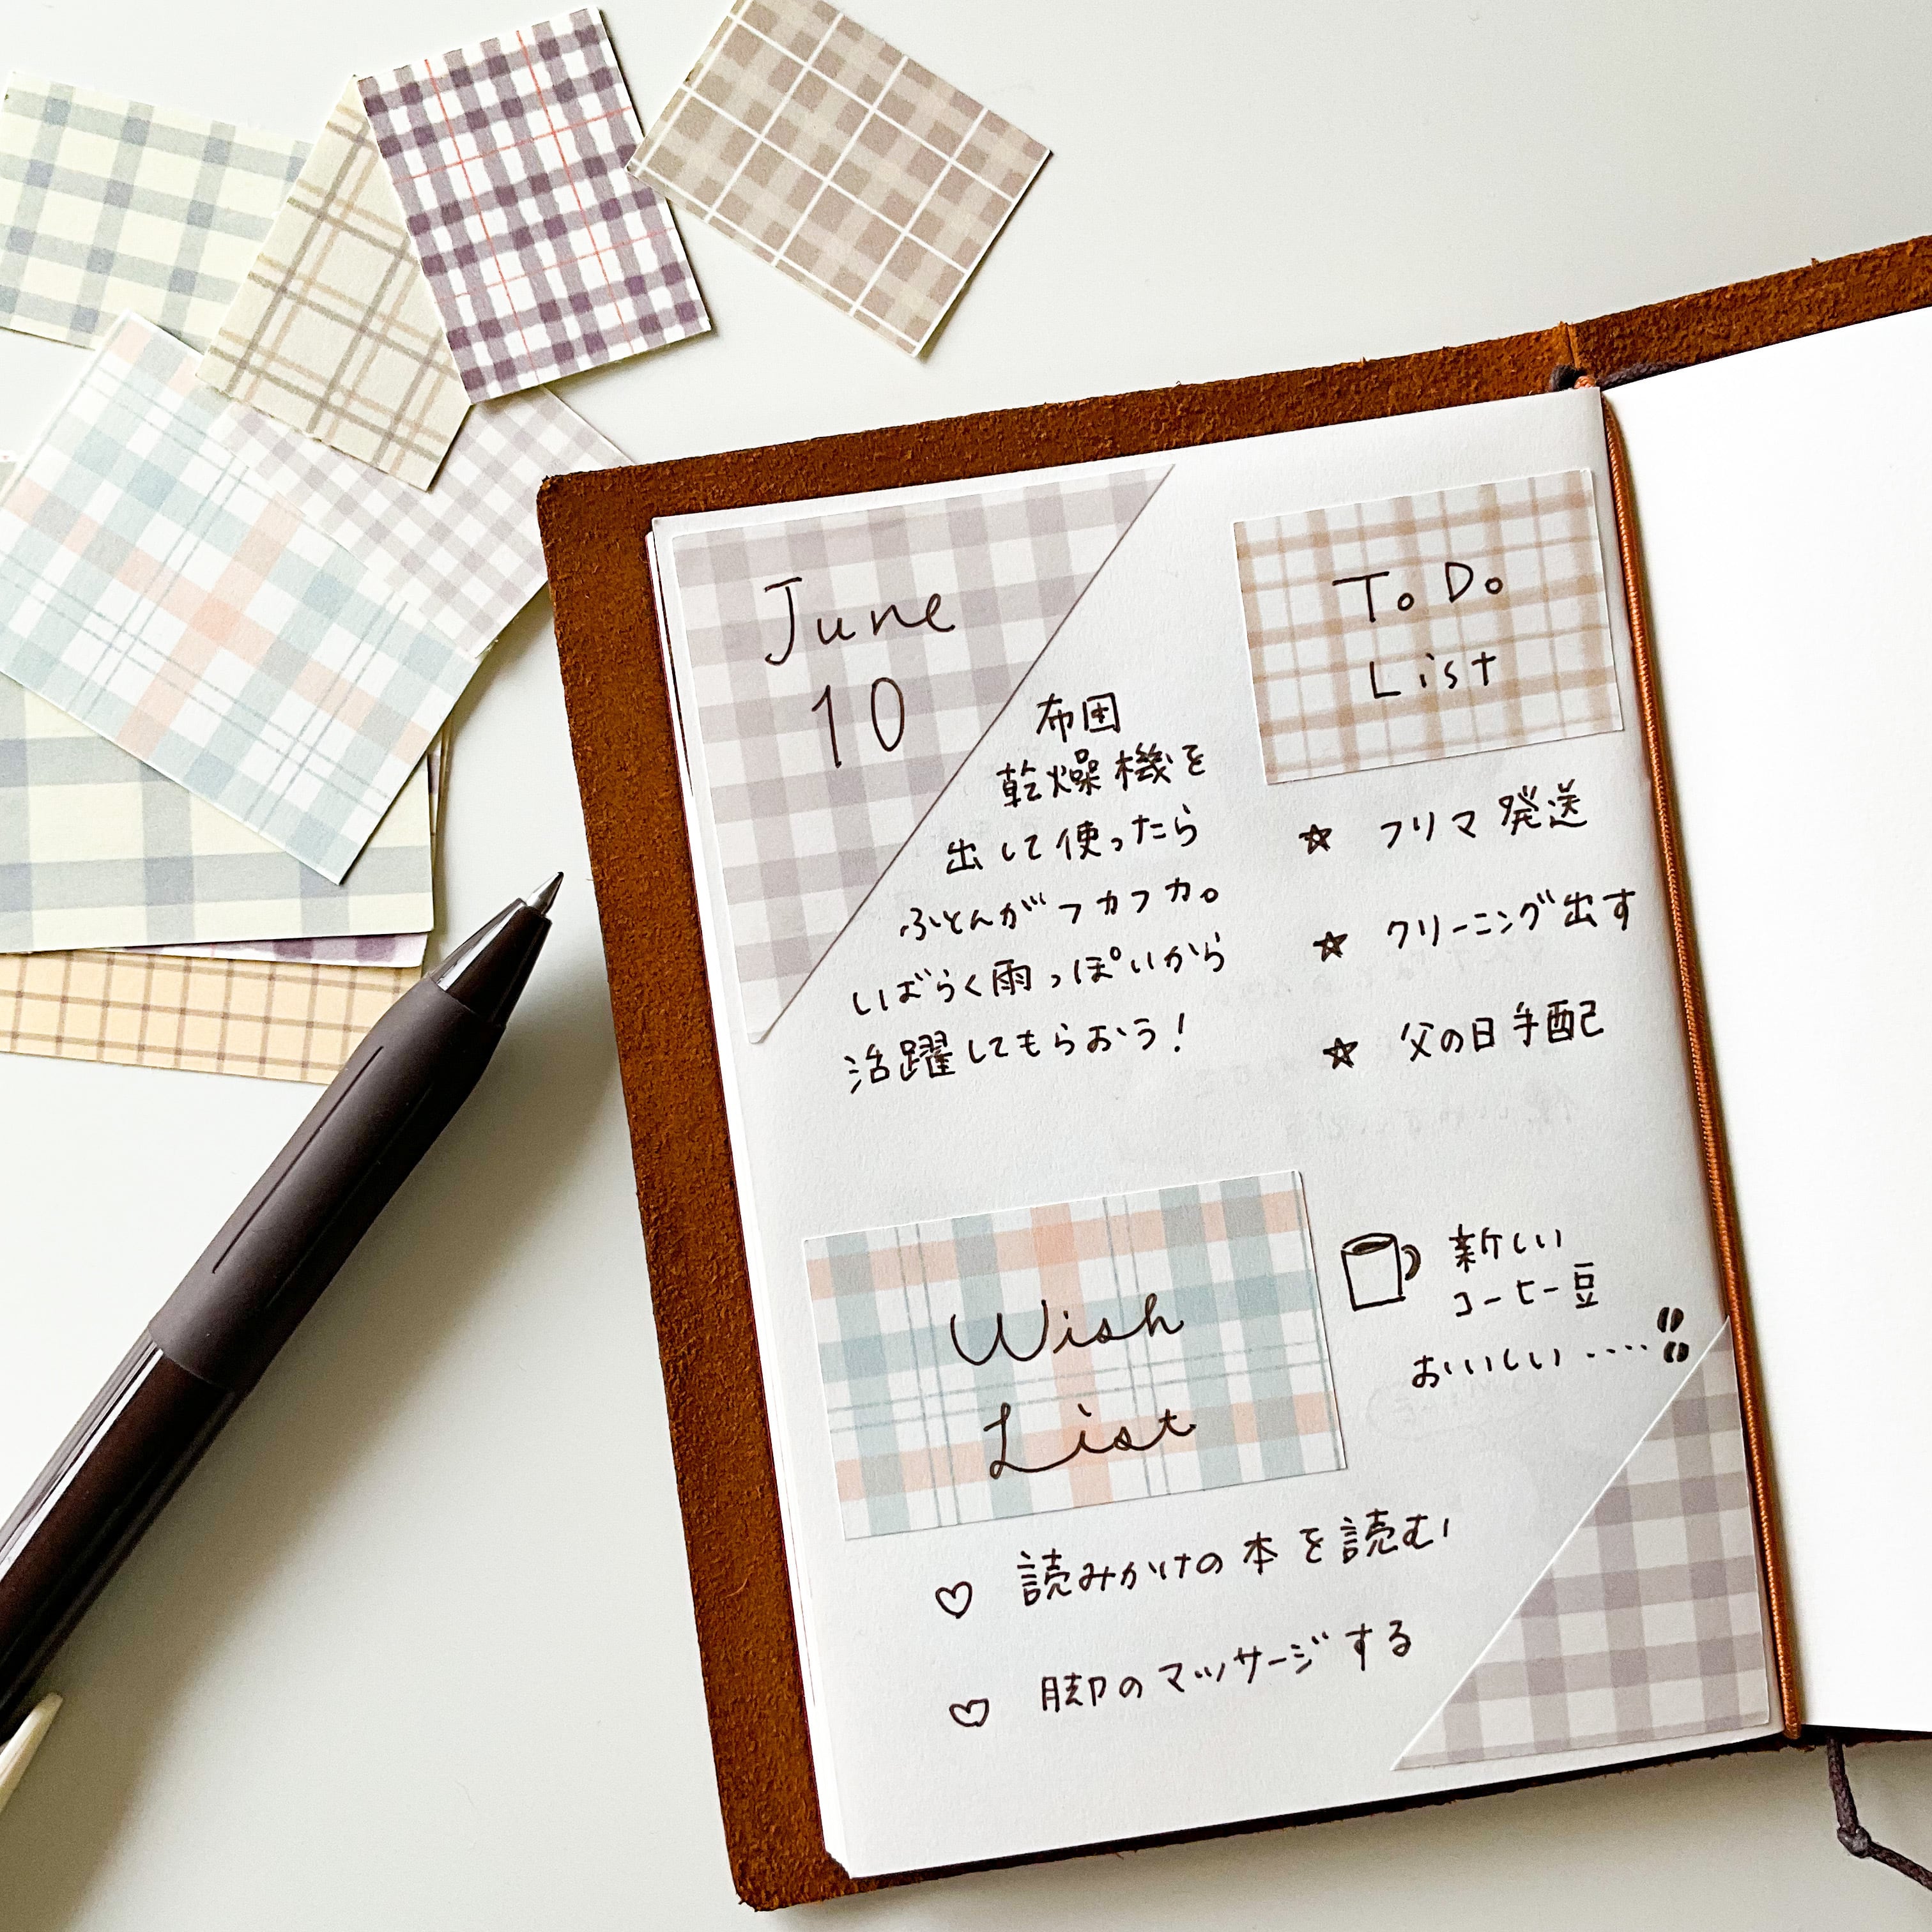 June
10
布団
乾燥機を
出して使ったら
ふとんがフカフカ。
しばらく雨っぽいから
活躍してもらおう!
To Do
List
☆ フリマ発送
☆ クリーニング出す
☆ 父の日手配
Wish
List
新しい
コーヒー豆
おいしい‥‥
♡ 読みかけの本を読む
♡ 脚のマッサージする